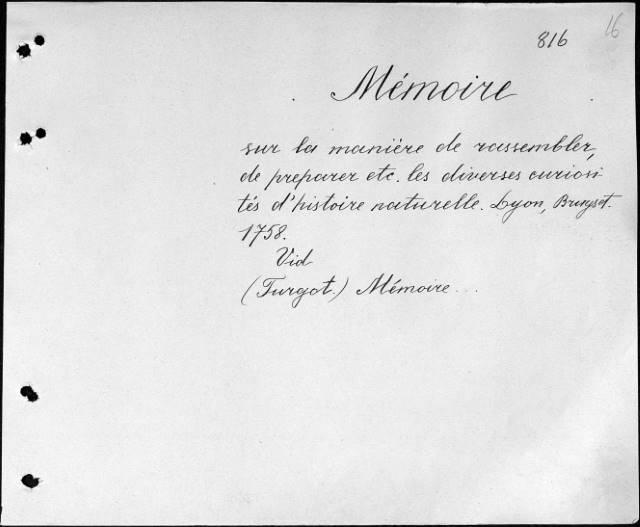 816 16
Mémoire
sur la manière de rassembler,
de preparer etc. les diverses curiosi
tés d'histoire naturelle. Lyon, Bruyset.
1758.
Vid
(Turgot.) Mémoire...